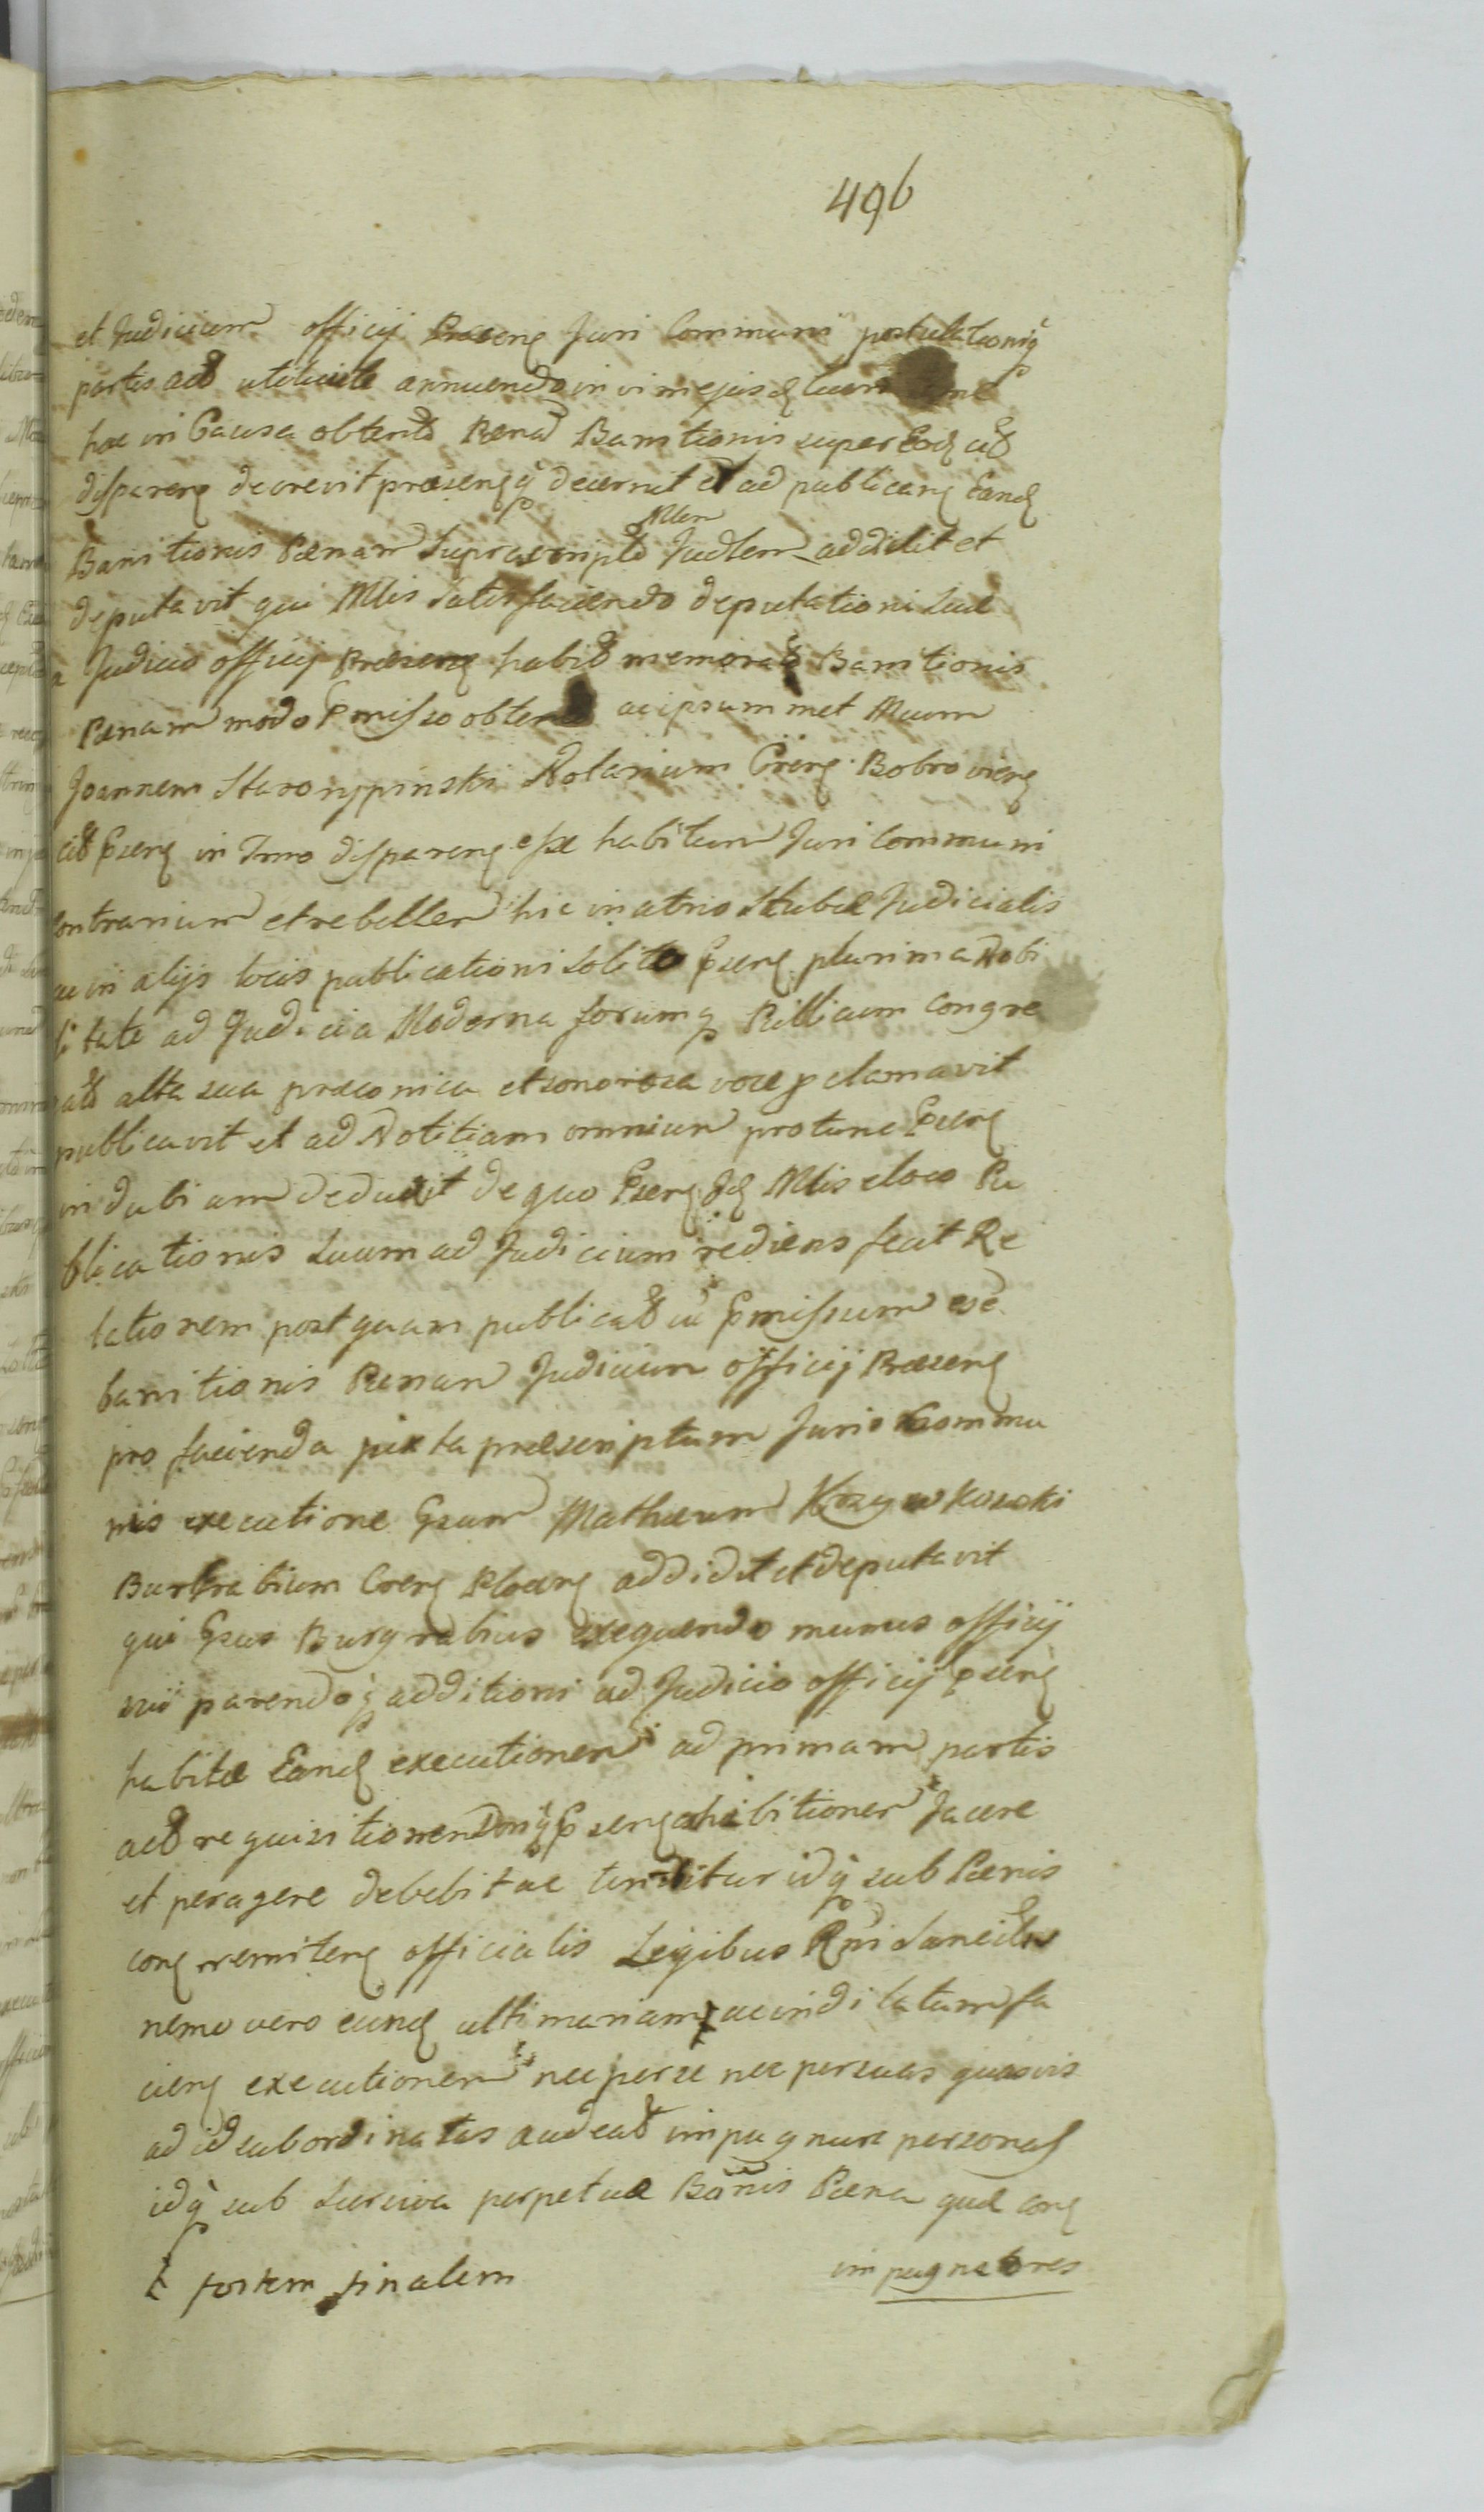 496
et Judicium officij Praesenę Juri Communi postulationiq̃
partis act utituitle annuendo in vim ejusę
hac in Causa obtentə Paenae Banitionis super Eodę cit
dispareną decrevit praesenęq̃ decernit et ad publicaną Eandę
Mlem
Banitionis Paenam suprascriptə Judlem addidit et
deputavit qui Mlis satisfaciendo deputationi suae
a Judicio officij Praesenę habitə memoratə Banitionis
Paenam modo Pmisso obtentə ac ipsummet Mcum
Joannem Starorypinski Notarium Crenę Bobrovienę
citə Psenę in Tmno dispareną esse habitum Juri Communi
contrarium et rebellem hic in atrio Stubae Judicialis
ac in alijs locis publicationi solitə Psenę plurima Nobi
litate ad Judicia Moderna forumq̃ Publicum congre
gatə alta sua praeconica et sonorosa voce pclamavit
publicavit et ad Notitiam omnium pro tunc Psenę
indubiam deduxit de quo Psenę Idę Mlis e loco Pu
blicationis suum ad Judicium rediens fecit Re
lationem post quam publicatə ut Pmissum esť
banitionis Paenam Judicium officij Praesenę
pro facienda juxta praescriptum Juris Commu
nis executione Gsum Mathaeum Krzywkowski
Burgrabium Crenę Plocenę addidit et deputavit
qui Gsus Burgrabius exequendo munus officij
sui parendoq̃ additioni ad Judicio officij Psenę
habitae Eandę executionem ad primam partis
actə requisitionem Doniq̃ Psenę exhibitionem facere
et peragere debebit ac tenebitur idq̃ sub Paenis
conę renitenę officialis Legibus Rgni sancitis
nemo vero eandę ultimariam ac inditatam fa
cienę executionem nec per se nec per suas quasvis
ad id subordinatas audeat impugnare personas
idq̃ sub surciva perpetuae Bannis Paena quae conę
impugnatores
fortem finalem